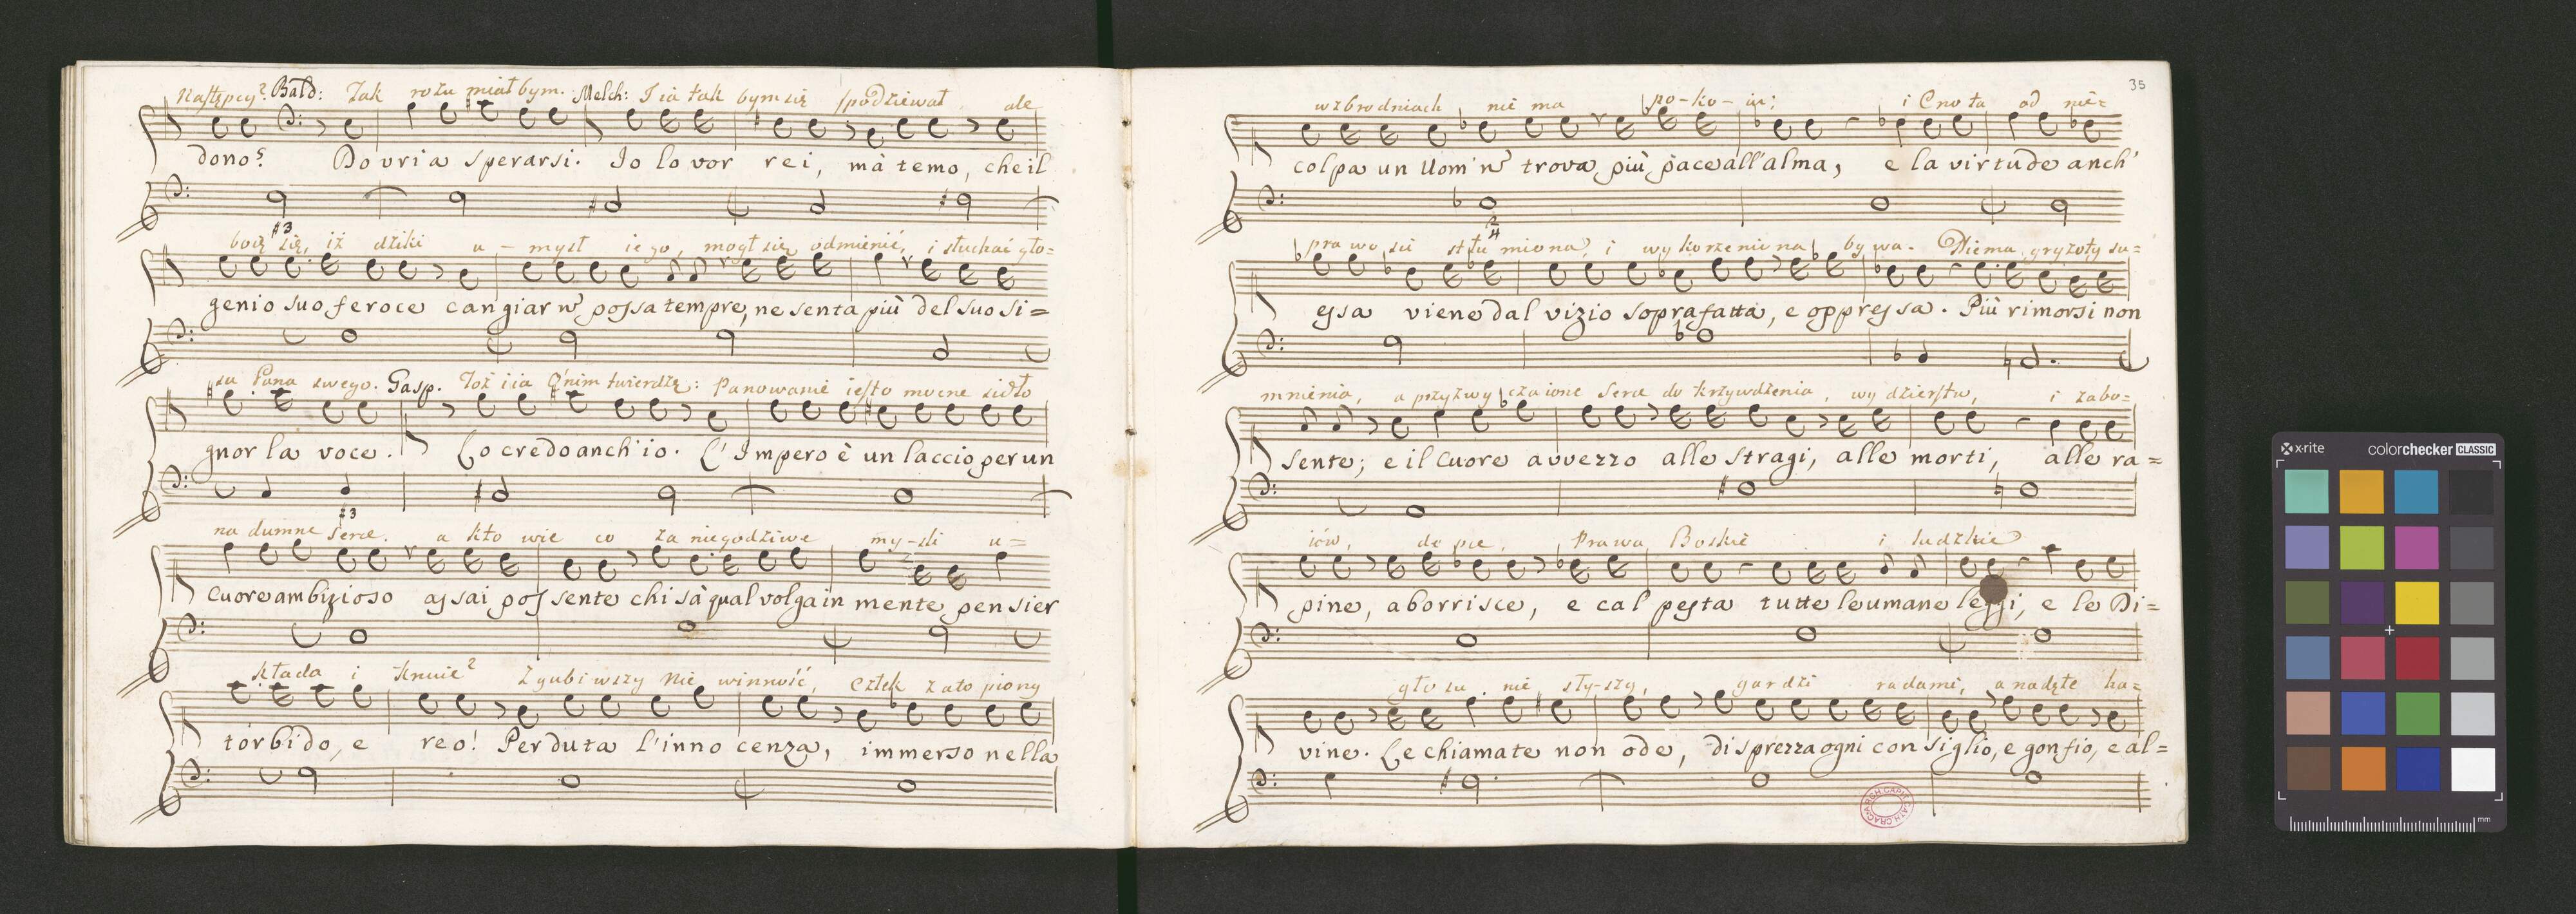 Następcy? Bald: Tak rozu miał bym. Melch: I ia tak bym się spodziewał ale
dono? Dovria sperarsi. Io lo vor rei, mà temo, che il
#3
boię się, iż dziki u – mysł iego, mogł się odmienić, i słuchać gło=
genio suo feroce cangiar nō possa tempre, ne senta più del suo si=
su Pana swego. Gasp. Toż i ia o nim twierdzę: Panowanie iesto mocne sidło
gnor la voce. Lo credo anch'io. L'Impero è un laccio per un
#3
na dumne Serce. a kto wie co za niegodziwe my-sli u=
cuore ambizioso assai possente chi sà qual volga in mente pensier
kłada i knuie? Zgubi wszy nie winność, człek zato piony
torbido, e reo! Perduta l'inno cenza, immerso nella
35
w zbrodniach nie ma po-ko-iu; i Cnota od nie=
colpa un Uom' nō trova più pace all'alma, e la virtude anch'
2
4
prawo sci stłu miona i wy korzeniona bywa. Niema gryzoty su=
essa viene dal vizio soprafatta, e oppressa. Più rimorsi non
mnienia, a przyzwy czaione Serce do krzywdzenia, wy dzierstw, i zabo=
sente; e il cuore avvezzo alle stragi, alle morti, alle ra=
iów, depce, Prawa Boskie i ludzkie
pine, aborrisce, e cal pesta tutte le umane leggi, e le Di=
głosu nie sły-szy, gardzi radami, a nadęte ha=
vine. Le chiamate non ode, disprezza ogni consiglio, e gonfio, e al=
ARCH. CAPIT. CATH. CRAC.
x-rite colorchecker CLASSIC
mm